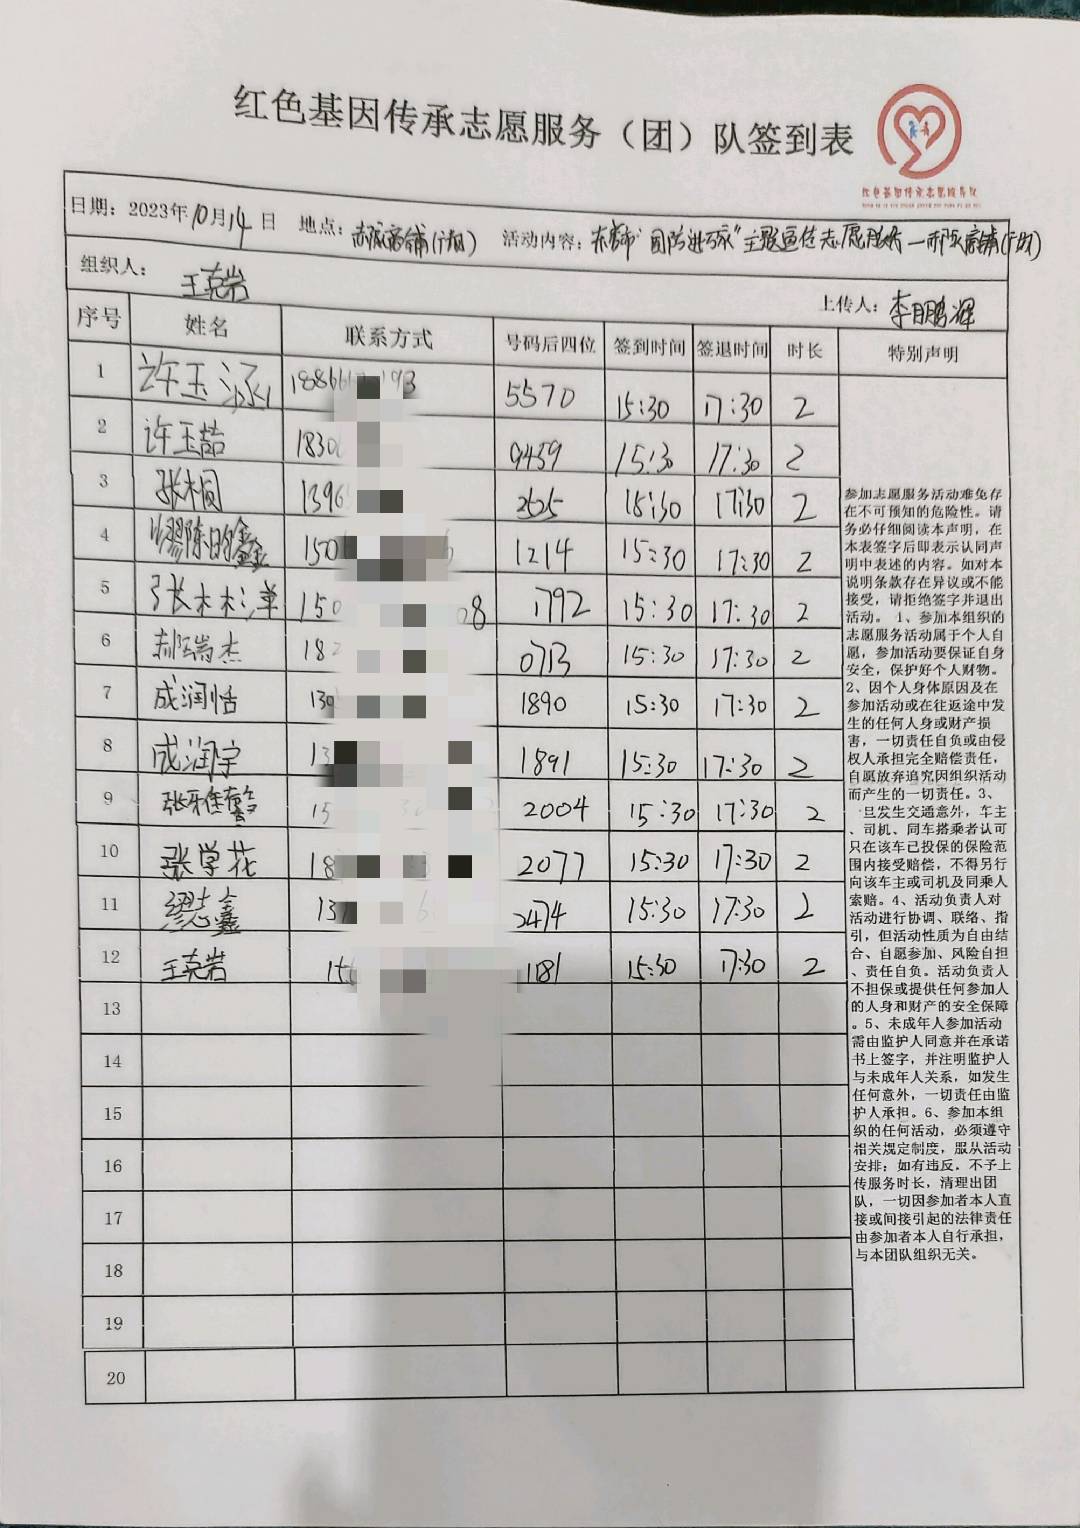 红色基因传承志愿服务（团）队签到表
红色基因传承志愿服务队
日期：2023年10月14日 地点： 活动内容：
组织人：王克岩 上传人：李鹏辉
序号 姓名 联系方式 号码后四位 签到时间 签退时间 时长 特别声明
1 许玉 5570 15:30 17:30 2
2 许玉喆 1830 9459 15:30 17:30 2
3 张桐 1396 2525 15:30 17:30 2
4 150 1214 15:30 17:30 2
5 张木杉 150 08 1792 15:30 17:30 2
6 郝瑞杰 18 0713 15:30 17:30 2
7 成润恬 130 1890 15:30 17:30 2
8 成润宇 13 1891 15:30 17:30 2
9 15 2004 15:30 17:30 2
10 张学花 18 2077 15:30 17:30 2
11 缪志鑫 13 2474 15:30 17:30 2
12 王克岩 1181 15:30 17:30 2
13
14
15
16
17
18
19
20
参加志愿服务活动难免存
在不可预知的危险性。请
务必仔细阅读本声明，在
本表签字后即表示认同声
明中表述的内容。如对本
说明条款存在异议或不能
接受，请拒绝签字并退出
活动。1、参加本组织的
志愿服务活动属于个人自
愿，参加活动要保证自身
安全，保护好个人财物。
2、因个人身体原因及在
参加活动或在往返途中发
生的任何人身或财产损
害，一切责任自负或由侵
权人承担完全赔偿责任，
自愿放弃追究因组织活动
而产生的一切责任。3、
一旦发生交通意外，车主
、司机、同车搭乘者认可
只在该车已投保的保险范
围内接受赔偿，不得另行
向该车主或司机及同乘人
索赔。4、活动负责人对
活动进行协调、联络、指
引，但活动性质为自由结
合、自愿参加、风险自担
、责任自负。活动负责人
不担保或提供任何参加人
的人身和财产的安全保障
。5、未成年人参加活动
需由监护人同意并在承诺
书上签字，并注明监护人
与未成年人关系，如发生
任何意外，一切责任由监
护人承担。6、参加本组
织的任何活动，必须遵守
相关规定制度，服从活动
安排；如有违反，不予上
传服务时长，清理出团
队，一切因参加者本人直
接或间接引起的法律责任
由参加者本人自行承担，
与本团队组织无关。